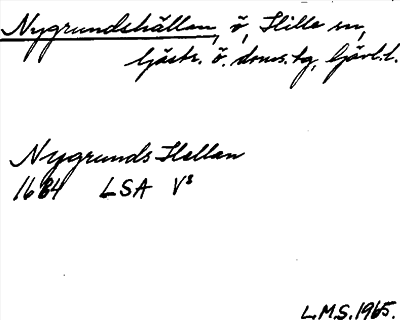 Nygrundshällan, ö, Hille sn,
Gästr. ö. doms.tg, Gävl.l.
Nygrunds Hellan
1684 LSA V8
L.M.S. 1965.